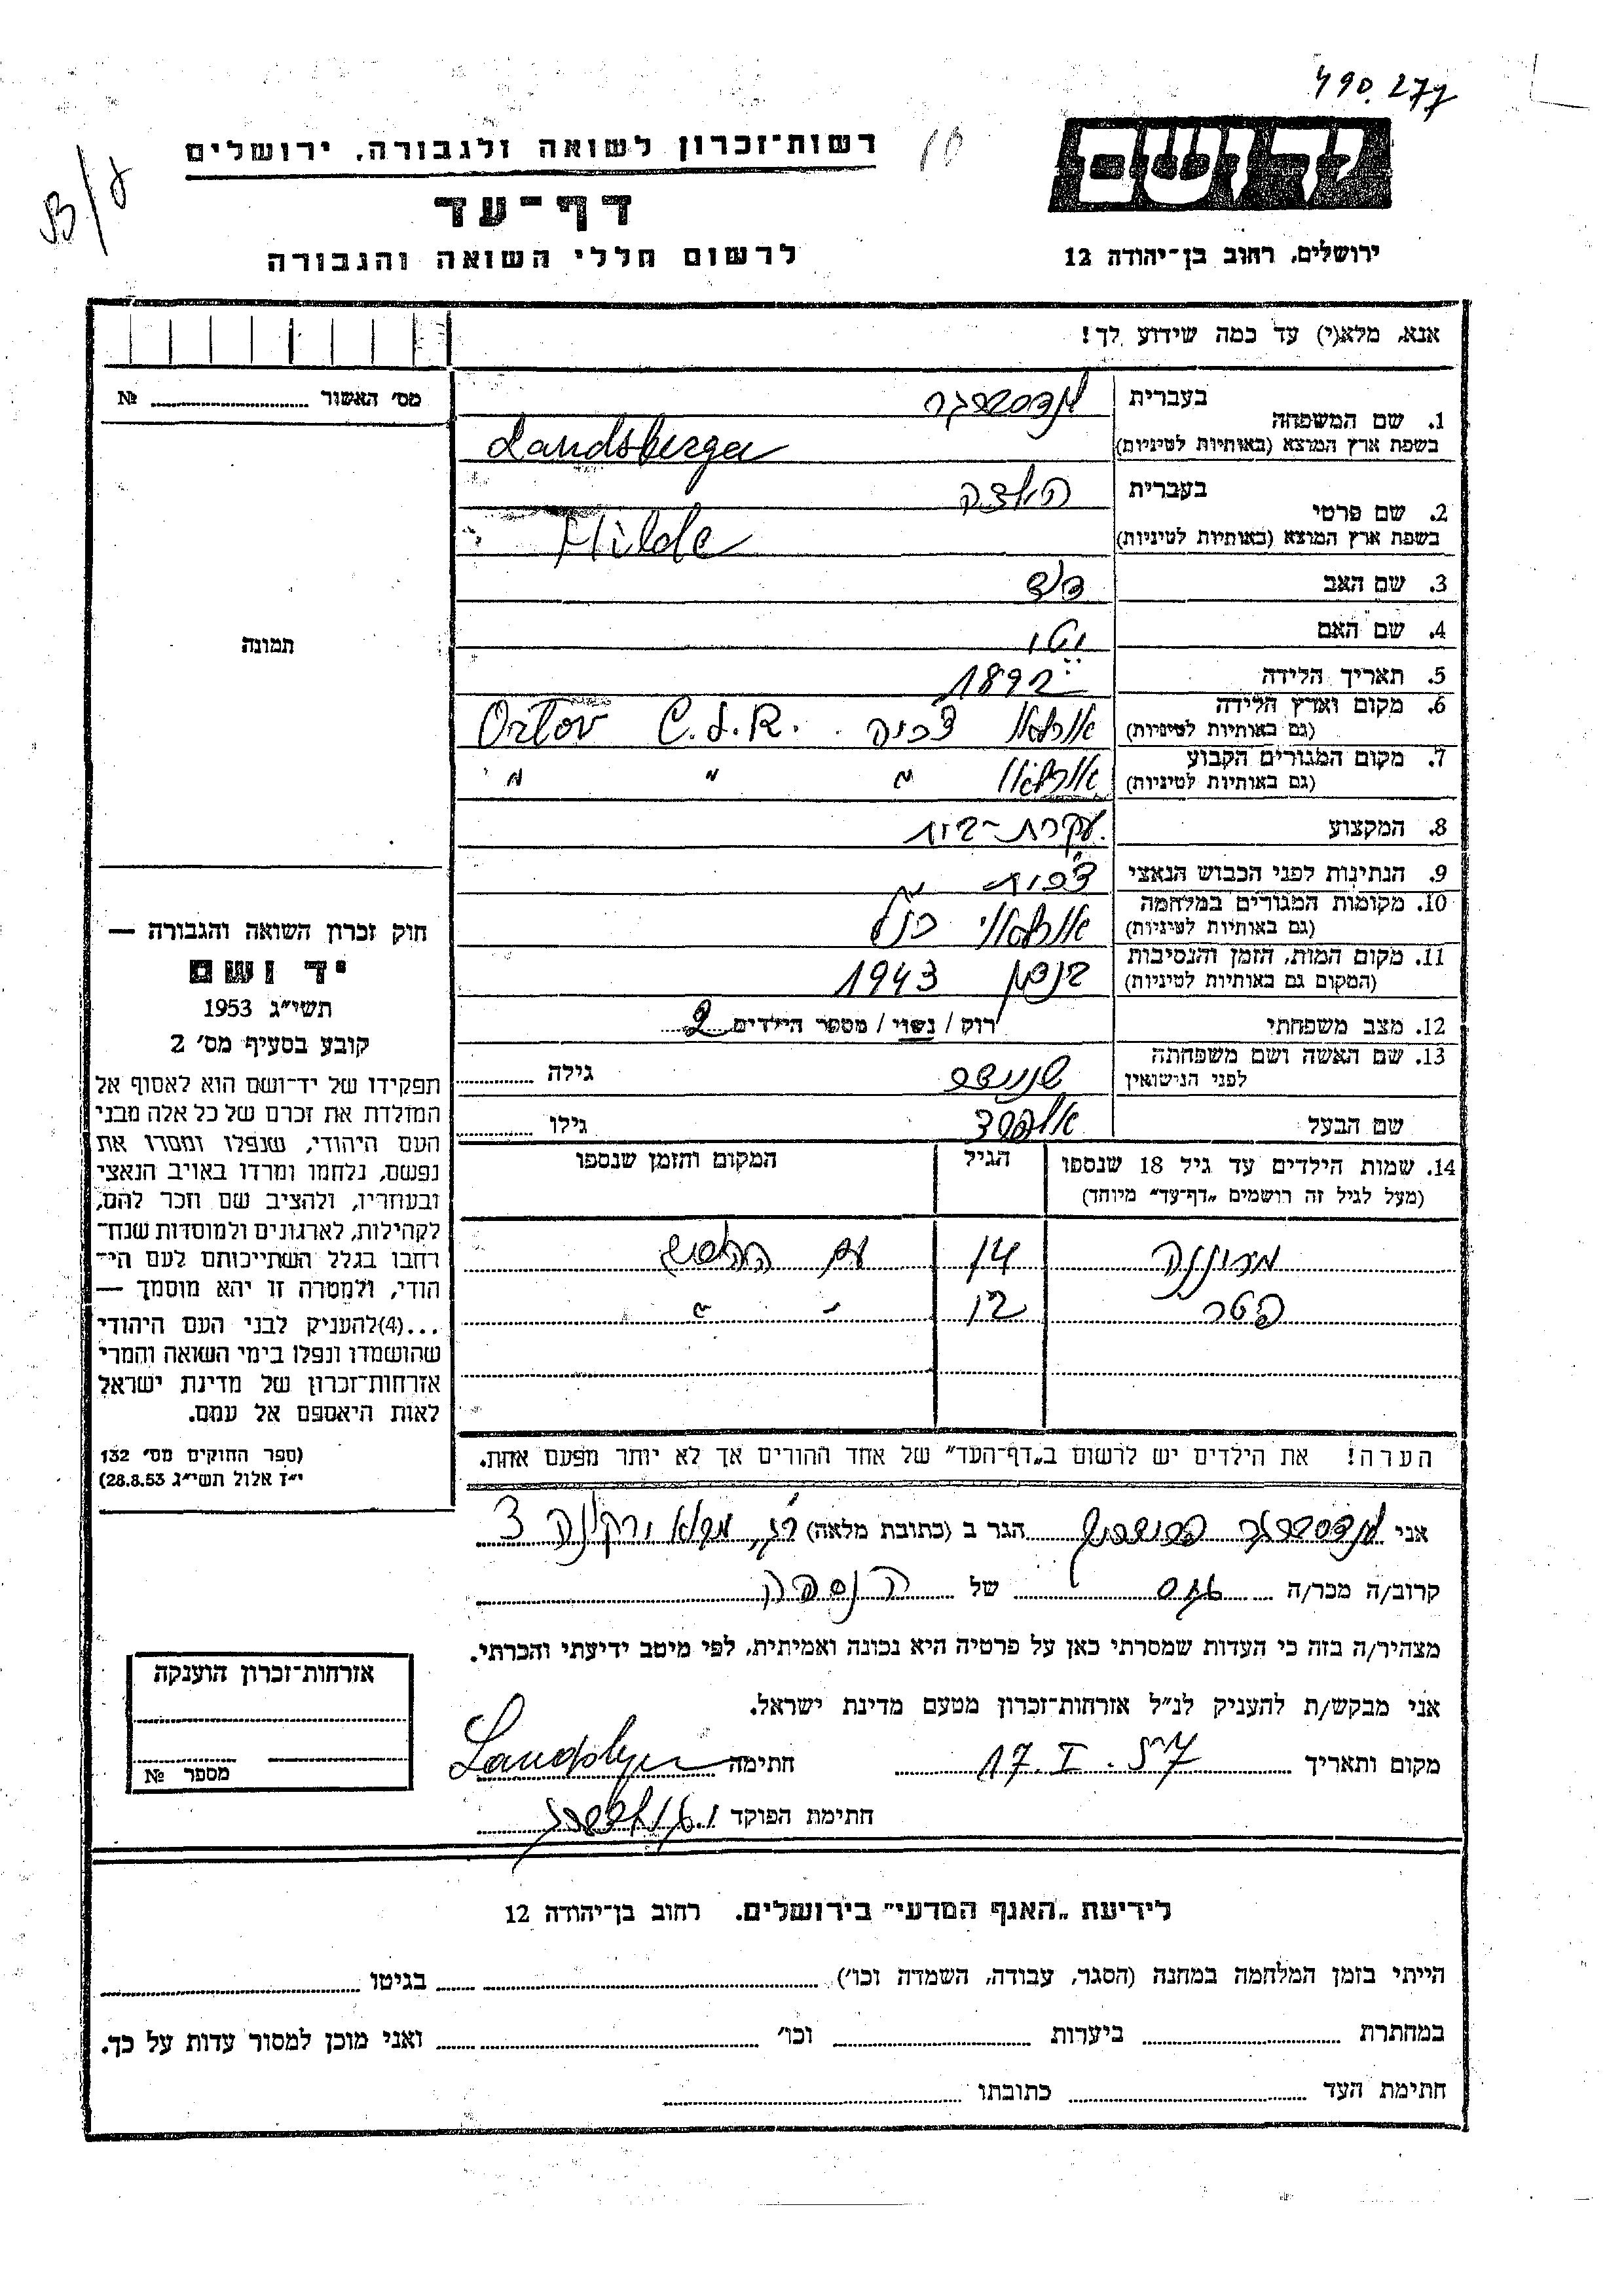 490.277
רשות־זכרון לשואה ולגבורה, ירושלים
דף־עד
לרשום חללי השואה והגבורה
יד ושם
ירושלים, רחוב בן־יהודה 12
אנא, מלא(י) עד כמה שידוע לך!
מס׳ האשור № 
1. שם המשפחה בעברית לנדסברגר
בשפת ארץ המוצא (באותיות לטיניות) Landsberger
2. שם פרטי בעברית הילדה
בשפת ארץ המוצא (באותיות לטיניות) Hilde
3. שם האב
4. שם האם
5. תאריך הלידה 1892
6. מקום וארץ הלידה (גם באותיות לטיניות) צ׳כיה Orlov C.S.R.
7. מקום המגורים הקבוע (גם באותיות לטיניות) " " "
8. המקצוע עקרת-בית
9. הנתינות לפני הכבוש הנאצי צ׳כית
10. מקומות המגורים במלחמה (גם באותיות לטיניות)
11. מקום המות, הזמן והנסיבות (המקום גם באותיות לטיניות) 1943
12. מצב משפחתי רוק / נשוי / מספר הילדים 2
13. שם האשה ושם משפחתה לפני הנישואין גילה
שם הבעל אלפרד גילו
14. שמות הילדים עד גיל 18 שנספו (מעל לגיל זה רושמים „דף־עד" מיוחד) הגיל המקום והזמן שנספו
14 עם
פטר 12 " "
הערה! את הילדים יש לרשום ב„דף־העד" של אחד ההורים אך לא יותר מפעם אחת.
תמונה
חוק זכרון השואה והגבורה —
יד ושם
תשי״ג 1953
קובע בסעיף מס׳ 2
תפקידו של יד־ושם הוא לאסוף אל
המולדת את זכרם של כל אלה מבני
העם היהודי, שנפלו ומסרו את
נפשם, נלחמו ומרדו באויב הנאצי
ובעוזריו, ולהציב שם וזכר להם,
לקהילות, לארגונים ולמוסדות שנח־
רבו בגלל השתייכותם לעם הי־
הודי, ולמטרה זו יהא מוסמך —
...(4)להעניק לבני העם היהודי
שהושמדו ונפלו בימי השואה והמרי
אזרחות־זכרון של מדינת ישראל
לאות היאספם אל עמם.
(ספר החוקים מס׳ 132
י״ז אלול תשי״ג 28.8.53)
אני לנדסברגר הגר ב (כתובת מלאה) 3
קרוב/ה מכר/ה של הנספה
מצהיר/ה בזה כי העדות שמסרתי כאן על פרטיה היא נכונה ואמיתית, לפי מיטב ידיעתי והכרתי.
אני מבקש/ת להעניק לנ״ל אזרחות־זכרון מטעם מדינת ישראל.
מקום ותאריך 17.I.57 חתימה
חתימת הפוקד
אזרחות־זכרון הוענקה
מספר №
לידיעת „האגף המדעי" בירושלים, רחוב בן־יהודה 12
הייתי בזמן המלחמה במחנה (הסגר, עבודה, השמדה וכו׳) בגיטו
במחתרת ביערות וכו׳ ואני מוכן למסור עדות על כך.
חתימת העד כתובתו